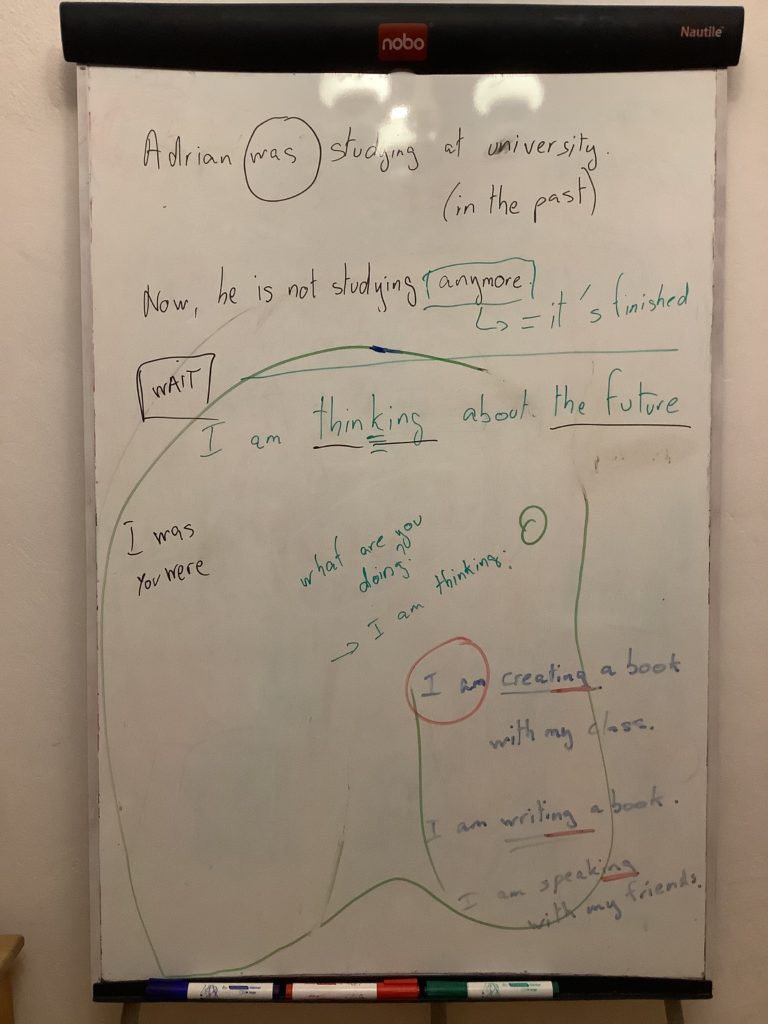 nobo
Nautile
Adrian was studying at university.
(in the past)
Now, he is not studying anymore.
↳ = it's finished
WAIT
I am thinking about the future
I was
You were
what are you
doing?
→ I am thinking.
I am creating a book
with my class.
I am writing a book.
I am speaking
with my friends.